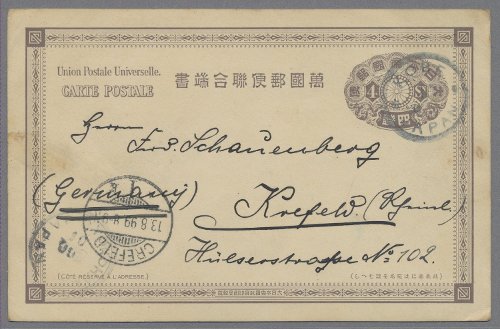 Union Postale Universelle.
CARTE POSTALE
書端合聯便郵國萬
4 S
四
JAPAN
Herrn
Ferd. Schauenberg
(Germany)
Krefeld. (Rheinl.)
Hülserstrasse No 102.
13.8.99
CREFELD
JAPAN
(CÔTÉ RÉSERVÉ À L'ADRESSE.)